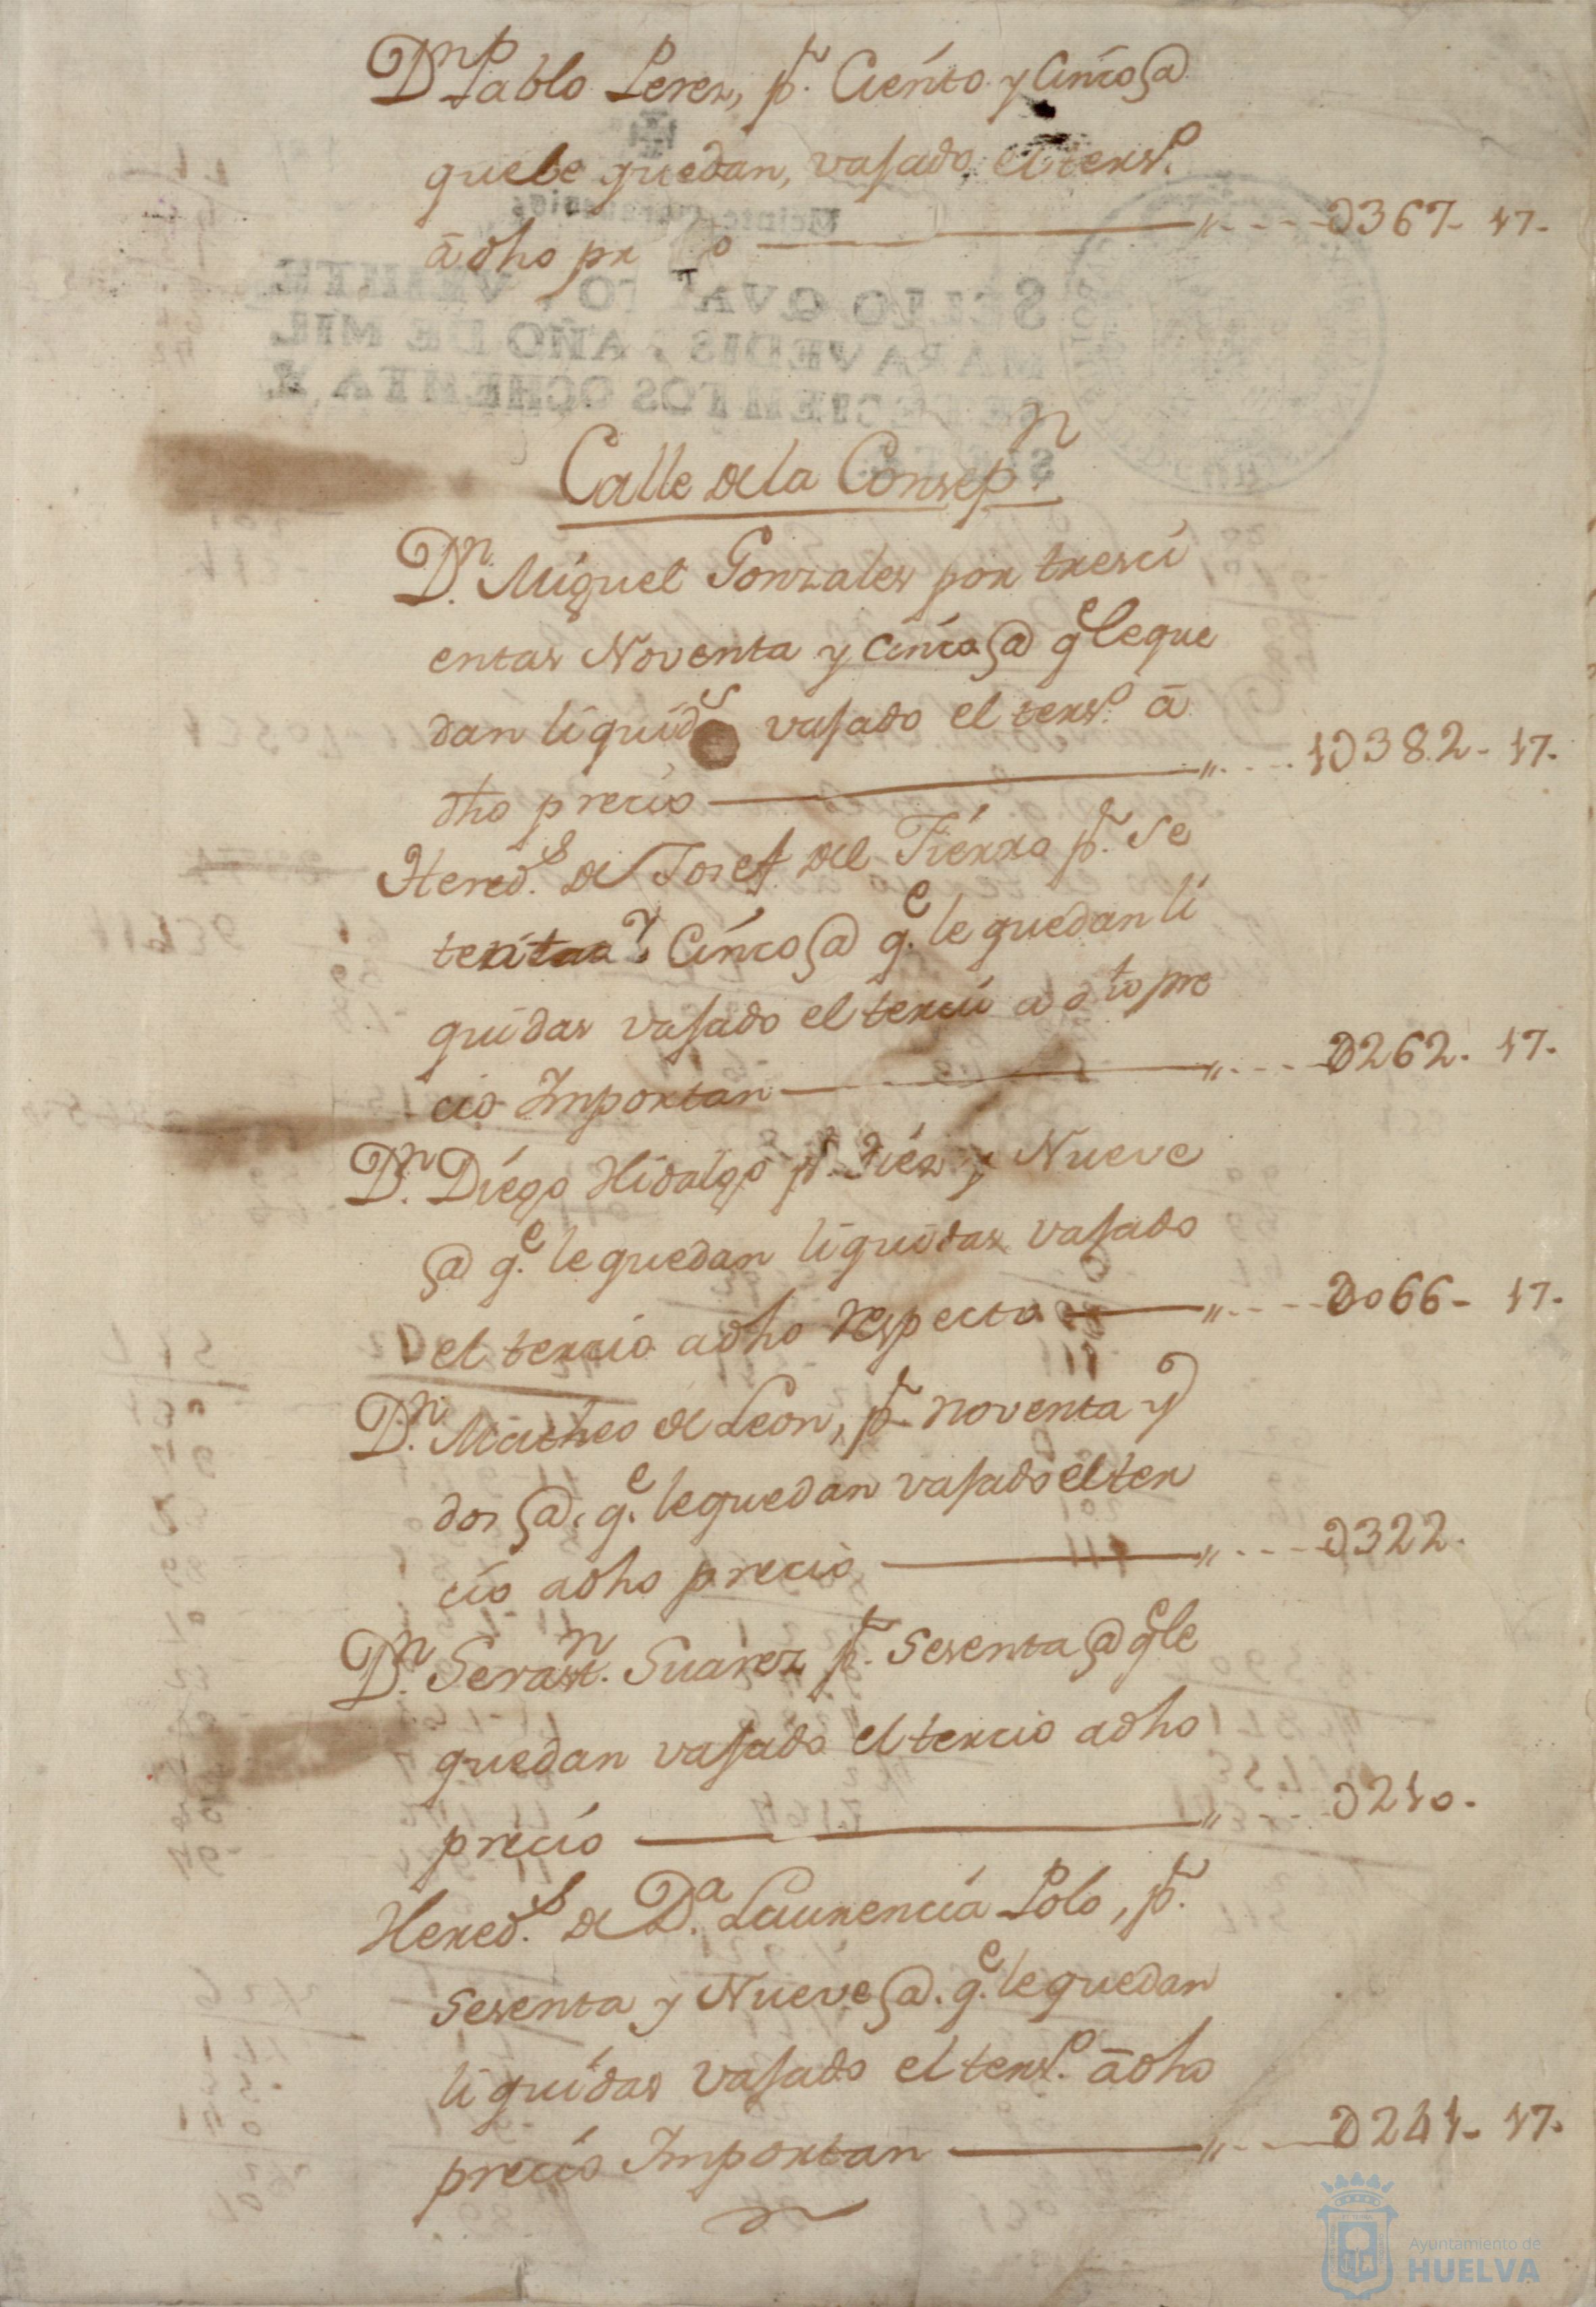 Dn Pablo Perez, pr. Ciento y Cinco @
quele quedan, vajado el terso.
ā dho pr o ————— „ - - - Ɔ367 - 17 -
SELLO QVARTO, VEINTE
MARAVEDIS, AÑO DE MIL
SETECIENTOS OCHENTA Y
SIETE
Calle de la Consepn.
Dn. Miguel Gonzales por tresci
entas Noventa y cinco @ qe le que
dan liquids vajado el terso. ā
dho precio ————— „ - - - 1Ɔ382 - 17.
Hereds. de Josef del Fierro pr. se
tenta y Cinco @ qe. le quedan li
quidas vajado el tercio a dho pre
cio Importan ————— „ - - - Ɔ262. 17.
Dn. Diego Hidalgo pr. Diez y Nueve
@ qe. le quedan liquidas vajado
el tercio adho respecto ——— „ - - - Ɔ066 - 17.
Dn. Matheo de Leon, pr. noventa y
dos @. qe. le quedan vajado el ter
cio adho precio ————— „ - - - Ɔ322.
Dn. Sevastn. Suarez pr. Sesenta @ qe le
quedan vajado el tercio adho
precio ————— „ - - - Ɔ210.
Hereds. de Da. Laurencia Polo, pr.
Sesenta y Nueve @. qe. le quedan
liquidas vajado el terso. ādho
precio Importan ————— „ - - - Ɔ241 - 17.
Ayuntamiento de
HUELVA